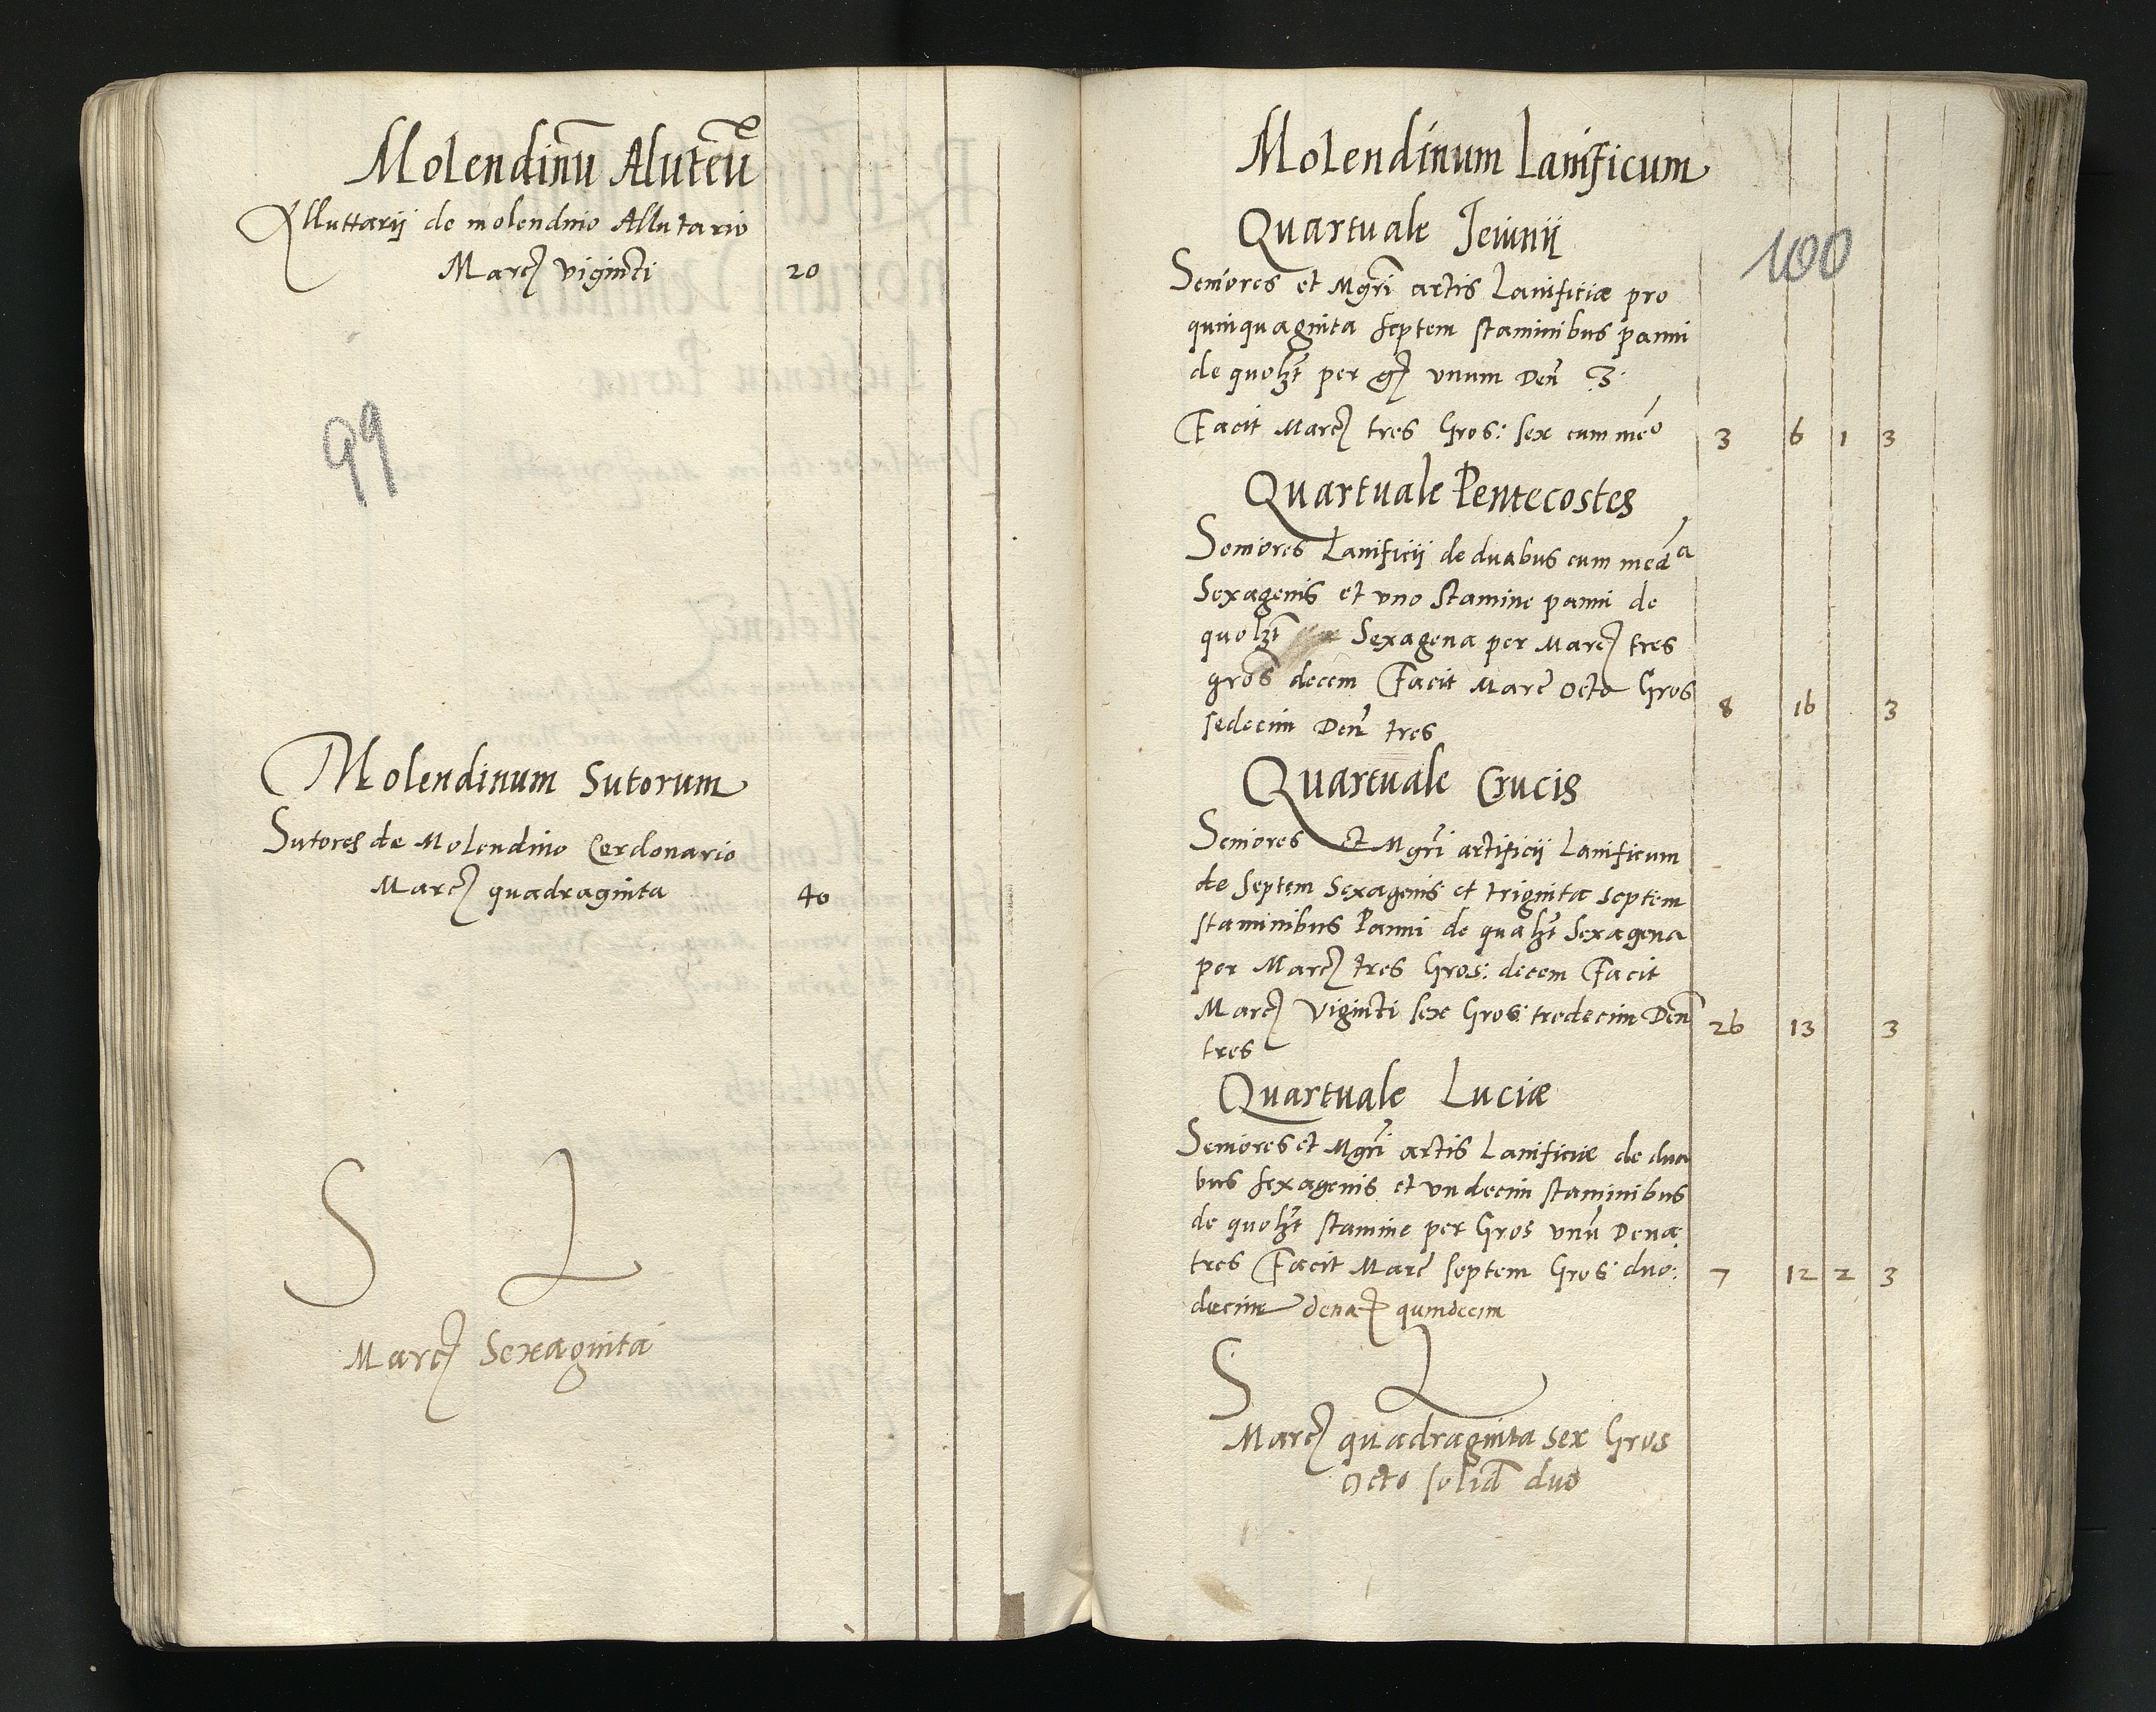 Molendinū Aluteū
Alluttarij de molendino Allutario
Marcꝭ viginti 20
99
Molendinum Sutorum
Sutores de Molendino Cerdonario
Marcꝭ quadraginta 40
S L
Marcꝭ Sexaginta
Molendinum Lanificum
100
Quartuale Jeiunij
Seniores et Mgr̄i artis Lanificiæ pro
quinquaginta septem staminibus panni
de quolꝫt per gꝭ unum Den̄ 3.
Facit Marcꝭ tres Gros: sex cum me͡o 3 6 1 3
Quartuale Pentecostes
Seniores Lanificij de duabus cum med͡a
Sexagenis et uno stamine panni de
quolꝫt Sexagena per Marcꝭ tres
gros̄ decem Facit Marc̄ octo Gros 8 16 3
sedecim Den̄ tres
Quartuale Crucis
Seniores et Mgr̄i artificij Lanificum
de septem Sexagenis et triginta septem
staminibus Panni de qualꝫt Sexagena
per Marcꝭ tres Gros: decem Facit
Marcꝭ Viginti sex Gros: tredecim Den̄ 26 13 3
tres
Quartuale Luciæ
Seniores et Mgr̄i artis Lanificiæ de dua
bus sexagenis et undecim staminibus
de quolꝫt stamine per Gros unū Dena
tres Facit Marc̄ septem Gros duo: 7 12 2 3
decim denaꝝ quindecim
S L
Marcꝭ quadraginta sex Gros
octo solid̄ duo